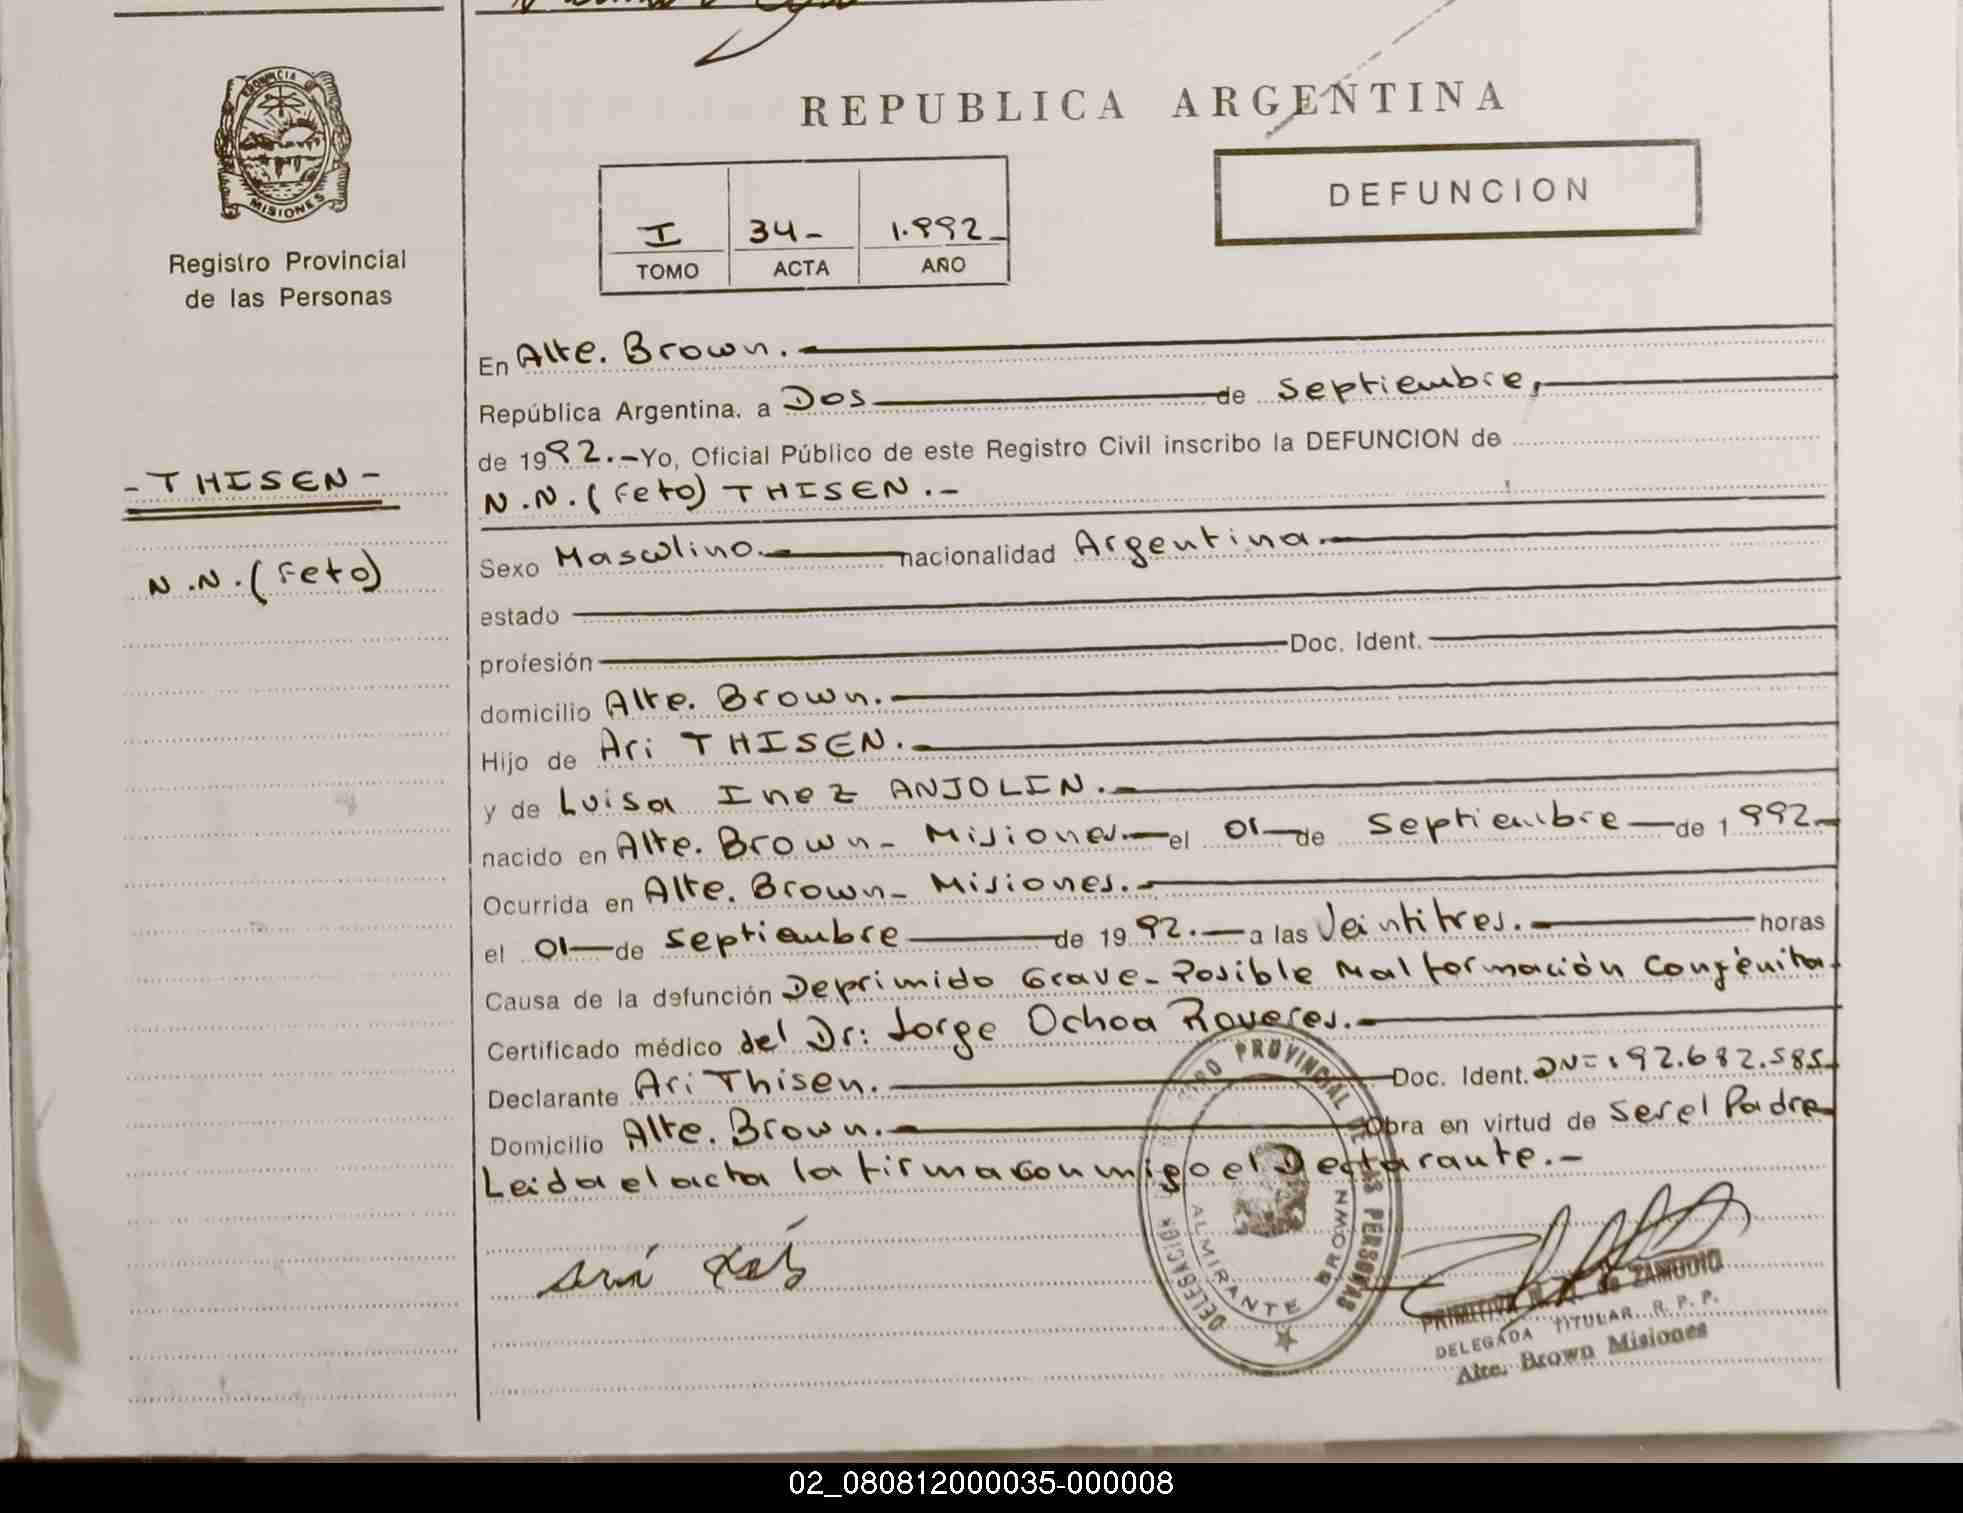 REPUBLICA ARGENTINA
PROVINCIA DE
MISIONES
Registro Provincial
de las Personas
I 34- 1.992-
TOMO ACTA AÑO
DEFUNCION
- THISEN -
N.N. (Feto)
En Alte. Brown.
República Argentina, a Dos de Septiembre,
de 1992.- Yo, Oficial Público de este Registro Civil inscribo la DEFUNCION de
N.N. (Feto) THISEN.-
Sexo Masculino. nacionalidad Argentina.
estado
profesión Doc. Ident.
domicilio Alte. Brown.
Hijo de Ari THISEN.
y de Luisa Inez ANJOLIN.
nacido en Alte. Brown- Misiones.- el 01- de Septiembre - de 1992-
Ocurrida en Alte. Brown- Misiones.-
el 01- de Septiembre de 1992.- a las Veintitres. horas
Causa de la defunción Deprimido Grave- Posible Malformación Congénita-
Certificado médico del Dr: Jorge Ochoa Roveres.-
Declarante Ari Thisen. Doc. Ident. DNº: 92.682.585-
Domicilio Alte. Brown. Obra en virtud de ser el Padre
Leida el acta la firma conmigo el Declarante.-
PROVINCIAL DE LAS PERSONAS
DELEGACION
ALMIRANTE BROWN
PRIMITIVA de ZAMUDIO
DELEGADA TITULAR R.P.P.
Alte. Brown Misiones
02_080812000035-000008